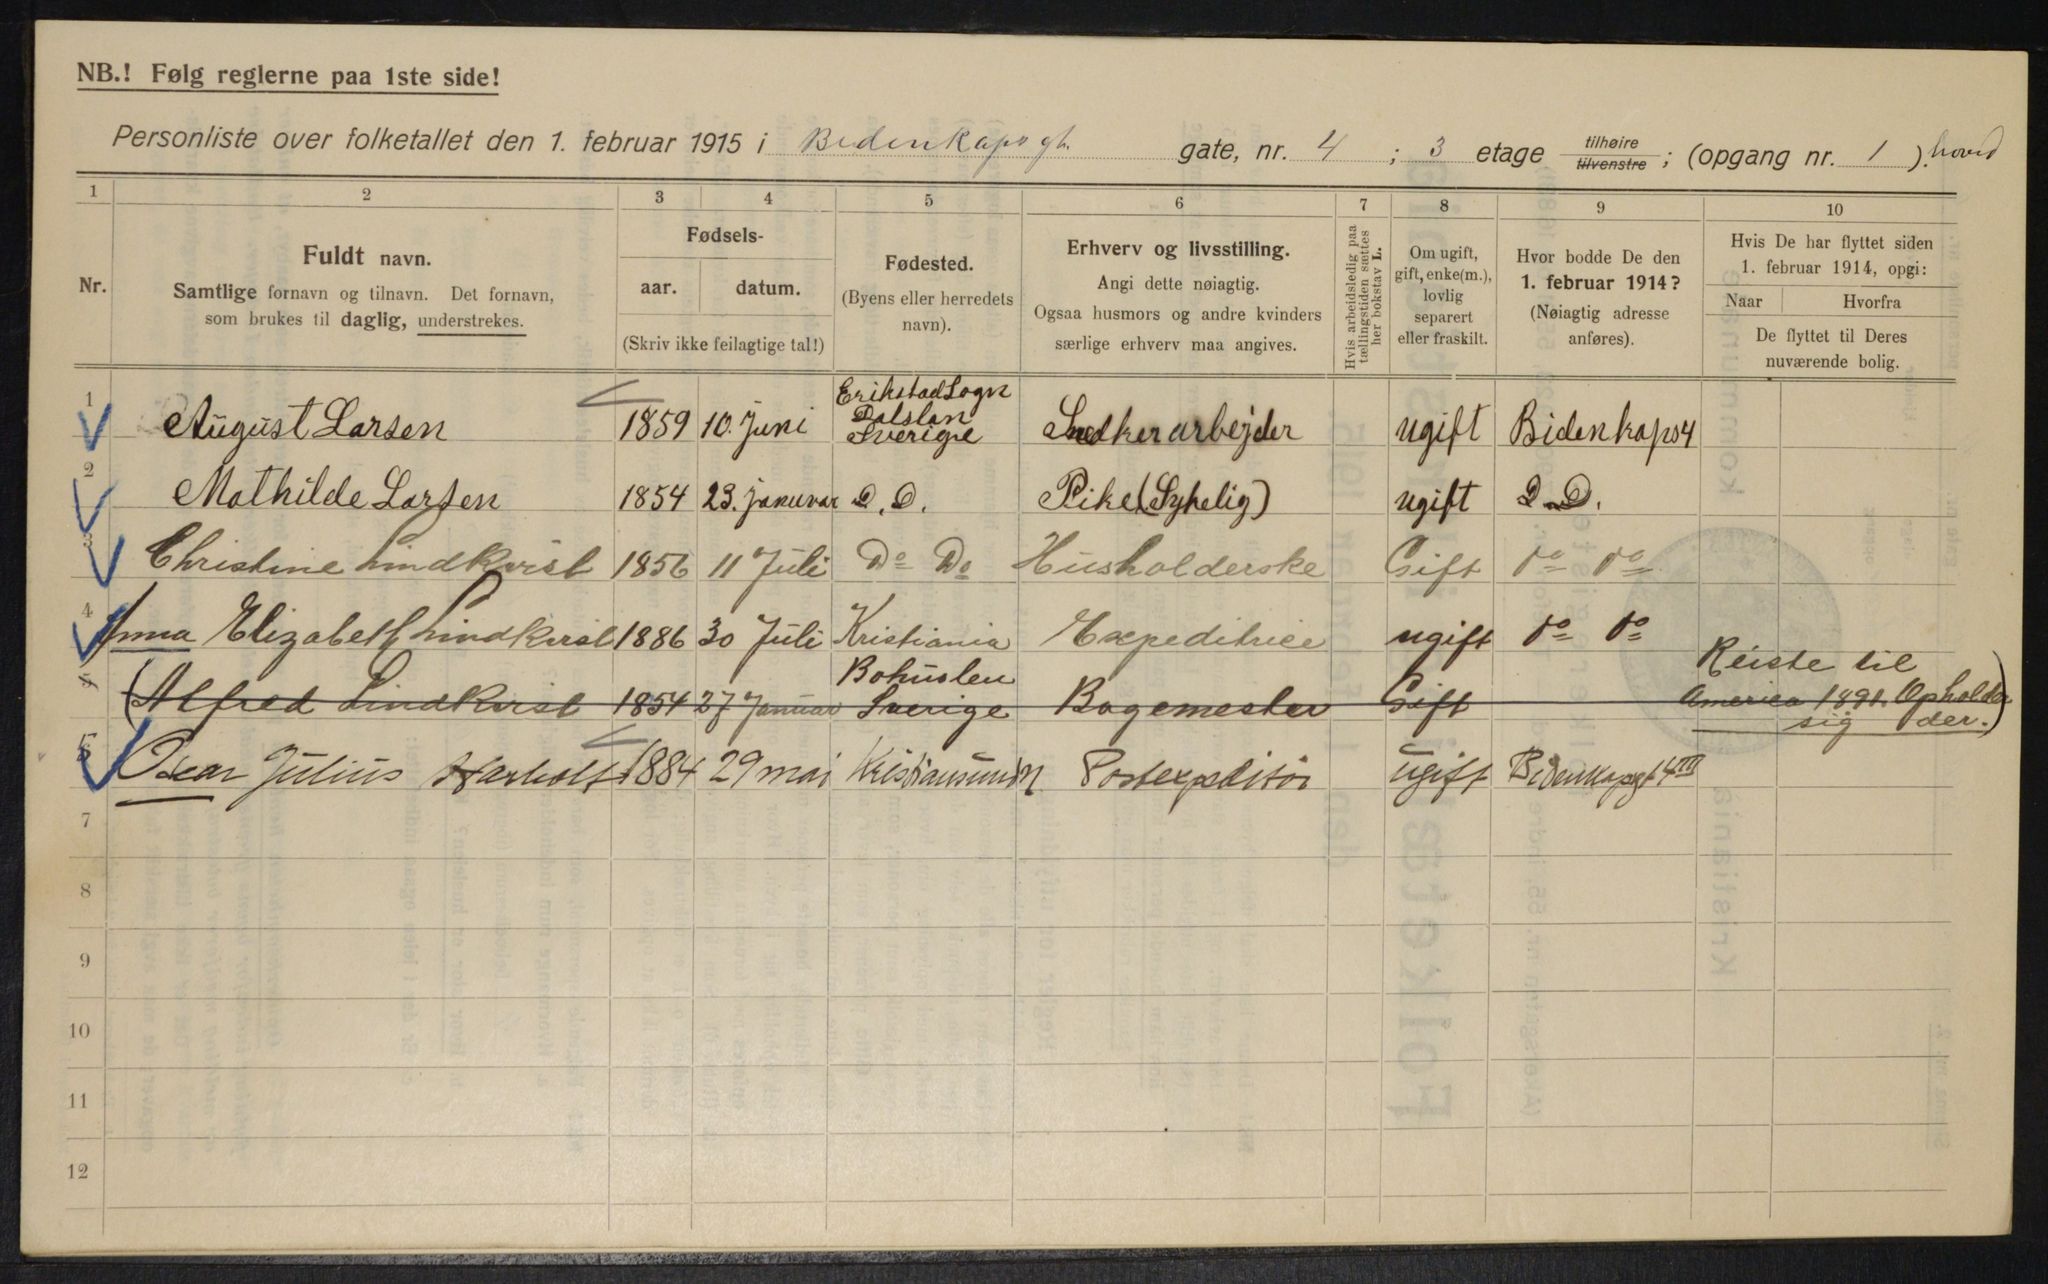 NB.! Følg reglerne paa 1ste side!
Personliste over folketallet den 1. februar 1915 i Bidenkaps gt. gate, nr. 4 ; 3 etage tilhøire tilvenstre ; (opgang nr. 1 ). hoved
1 2 3 4 5 6 7 8 9 10
Nr.
Fuldt navn.
Samtlige fornavn og tilnavn. Det fornavn,
som brukes til daglig, understrekes.
Fødsels-
aar. datum.
(Skriv ikke feilagtige tal!)
Fødested.
(Byens eller herredets
navn).
Erhverv og livsstilling.
Angi dette nøiagtig.
Ogsaa husmors og andre kvinders
særlige erhverv maa angives.
Hvis arbeidsledig paa
tællingstiden sættes
her bokstav L.
Om ugift,
gift, enke(m.),
lovlig
separert
eller fraskilt.
Hvor bodde De den
1. februar 1914?
(Nøiagtig adresse
anføres).
Hvis De har flyttet siden
1. februar 1914, opgi:
Naar Hvorfra
De flyttet til Deres
nuværende bolig.
1 August Larsen 1859 10. Juni Erikstad Sogn Dalslan Sverige Snedkerarbejder ugift Bidenkaps 4
2 Mathilde Larsen 1854 23. Januvar D. D. Pike (Sykelig) ugift D. D.
3 Christine Lindkvist 1856 11 Juli Do Do Husholderske Gift do do
4 Anna Elizabeth Lindkvist 1886 30 Juli Kristiania Expeditrice ugift do do
(Alfred Lindkvist 1854 27 Januar Bohuslen Sverige Bagemester Gift Reiste til America 1891. Opholder sig der.)
5 Oscar Julius Harholt 1884 29 mai Kristiansund N Postexpeditør ugift Bidenkapsgt 4 III
7
8
9
10
11
12